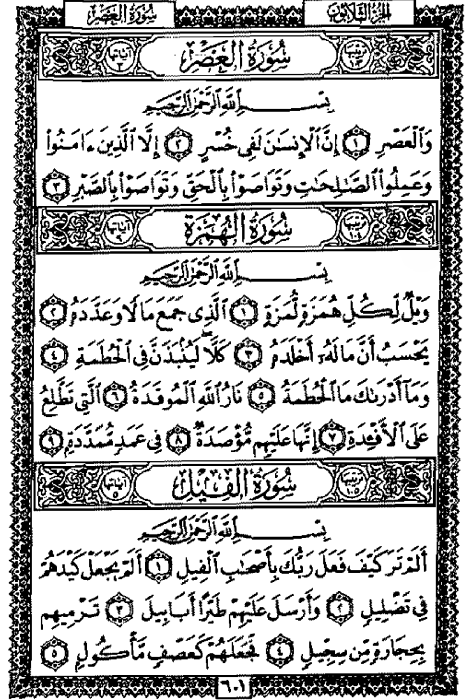 سُورَةُ العَصْرِ الجُزْءُ الثَّلَاثُونَ
ترتيبها ١٠٣ سُورَةُ العَصْرِ آياتها ٣
بِسْمِ اللَّهِ الرَّحْمَٰنِ الرَّحِيمِ
وَالْعَصْرِ ۝١ إِنَّ الْإِنسَٰنَ لَفِى خُسْرٍ ۝٢ إِلَّا الَّذِينَ ءَامَنُوا
وَعَمِلُوا الصَّٰلِحَٰتِ وَتَوَاصَوْا بِالْحَقِّ وَتَوَاصَوْا بِالصَّبْرِ ۝٣
ترتيبها ١٠٤ سُورَةُ الهُمَزَةِ آياتها ٩
بِسْمِ اللَّهِ الرَّحْمَٰنِ الرَّحِيمِ
وَيْلٌ لِّكُلِّ هُمَزَةٍ لُّمَزَةٍ ۝١ الَّذِى جَمَعَ مَالًا وَعَدَّدَهُۥ ۝٢
يَحْسَبُ أَنَّ مَالَهُۥٓ أَخْلَدَهُۥ ۝٣ كَلَّا ۖ لَيُنۢبَذَنَّ فِى الْحُطَمَةِ ۝٤
وَمَآ أَدْرَىٰكَ مَا الْحُطَمَةُ ۝٥ نَارُ اللَّهِ الْمُوقَدَةُ ۝٦ الَّتِى تَطَّلِعُ
عَلَى الْأَفْـِٔدَةِ ۝٧ إِنَّهَا عَلَيْهِم مُّؤْصَدَةٌ ۝٨ فِى عَمَدٍ مُّمَدَّدَةٍۭ ۝٩
ترتيبها ١٠٥ سُورَةُ الفِيلِ آياتها ٥
بِسْمِ اللَّهِ الرَّحْمَٰنِ الرَّحِيمِ
أَلَمْ تَرَ كَيْفَ فَعَلَ رَبُّكَ بِأَصْحَٰبِ الْفِيلِ ۝١ أَلَمْ يَجْعَلْ كَيْدَهُمْ
فِى تَضْلِيلٍ ۝٢ وَأَرْسَلَ عَلَيْهِمْ طَيْرًا أَبَابِيلَ ۝٣ تَرْمِيهِم
بِحِجَارَةٍ مِّن سِجِّيلٍ ۝٤ فَجَعَلَهُمْ كَعَصْفٍ مَّأْكُولٍۭ ۝٥
٦٠١